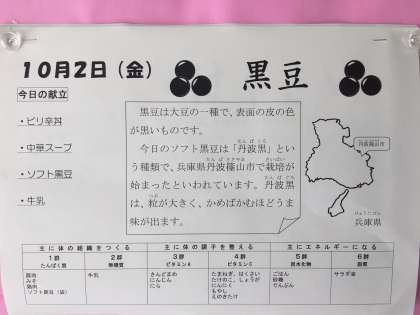 10月2日（金）
黒豆
今日の献立
・ピリ辛丼
・中華スープ
・ソフト黒豆
・牛乳
黒豆は大豆の一種で、表面の皮の色
が黒いものです。
今日のソフト黒豆は「丹波黒」とい
う種類で、兵庫県丹波篠山市で栽培が
始まったといわれています。丹波黒
は、粒が大きく、かめばかむほどうま
味が出ます。
丹波篠山市
兵庫県
主に体の組織をつくる 主に体の調子を整える 主にエネルギーになる
1群 2群 3群 4群 5群 6群
たんぱく質 無機質 ビタミンA ビタミンC 炭水化物 脂質
豚肉 牛乳 さんどまめ たまねぎ、はくさい ごはん サラダ油
みそ にんじん たけのこ、しょうが 砂糖
鶏肉 にら にんにく でんぷん
ソフト黒豆（袋） もやし
えのきたけ